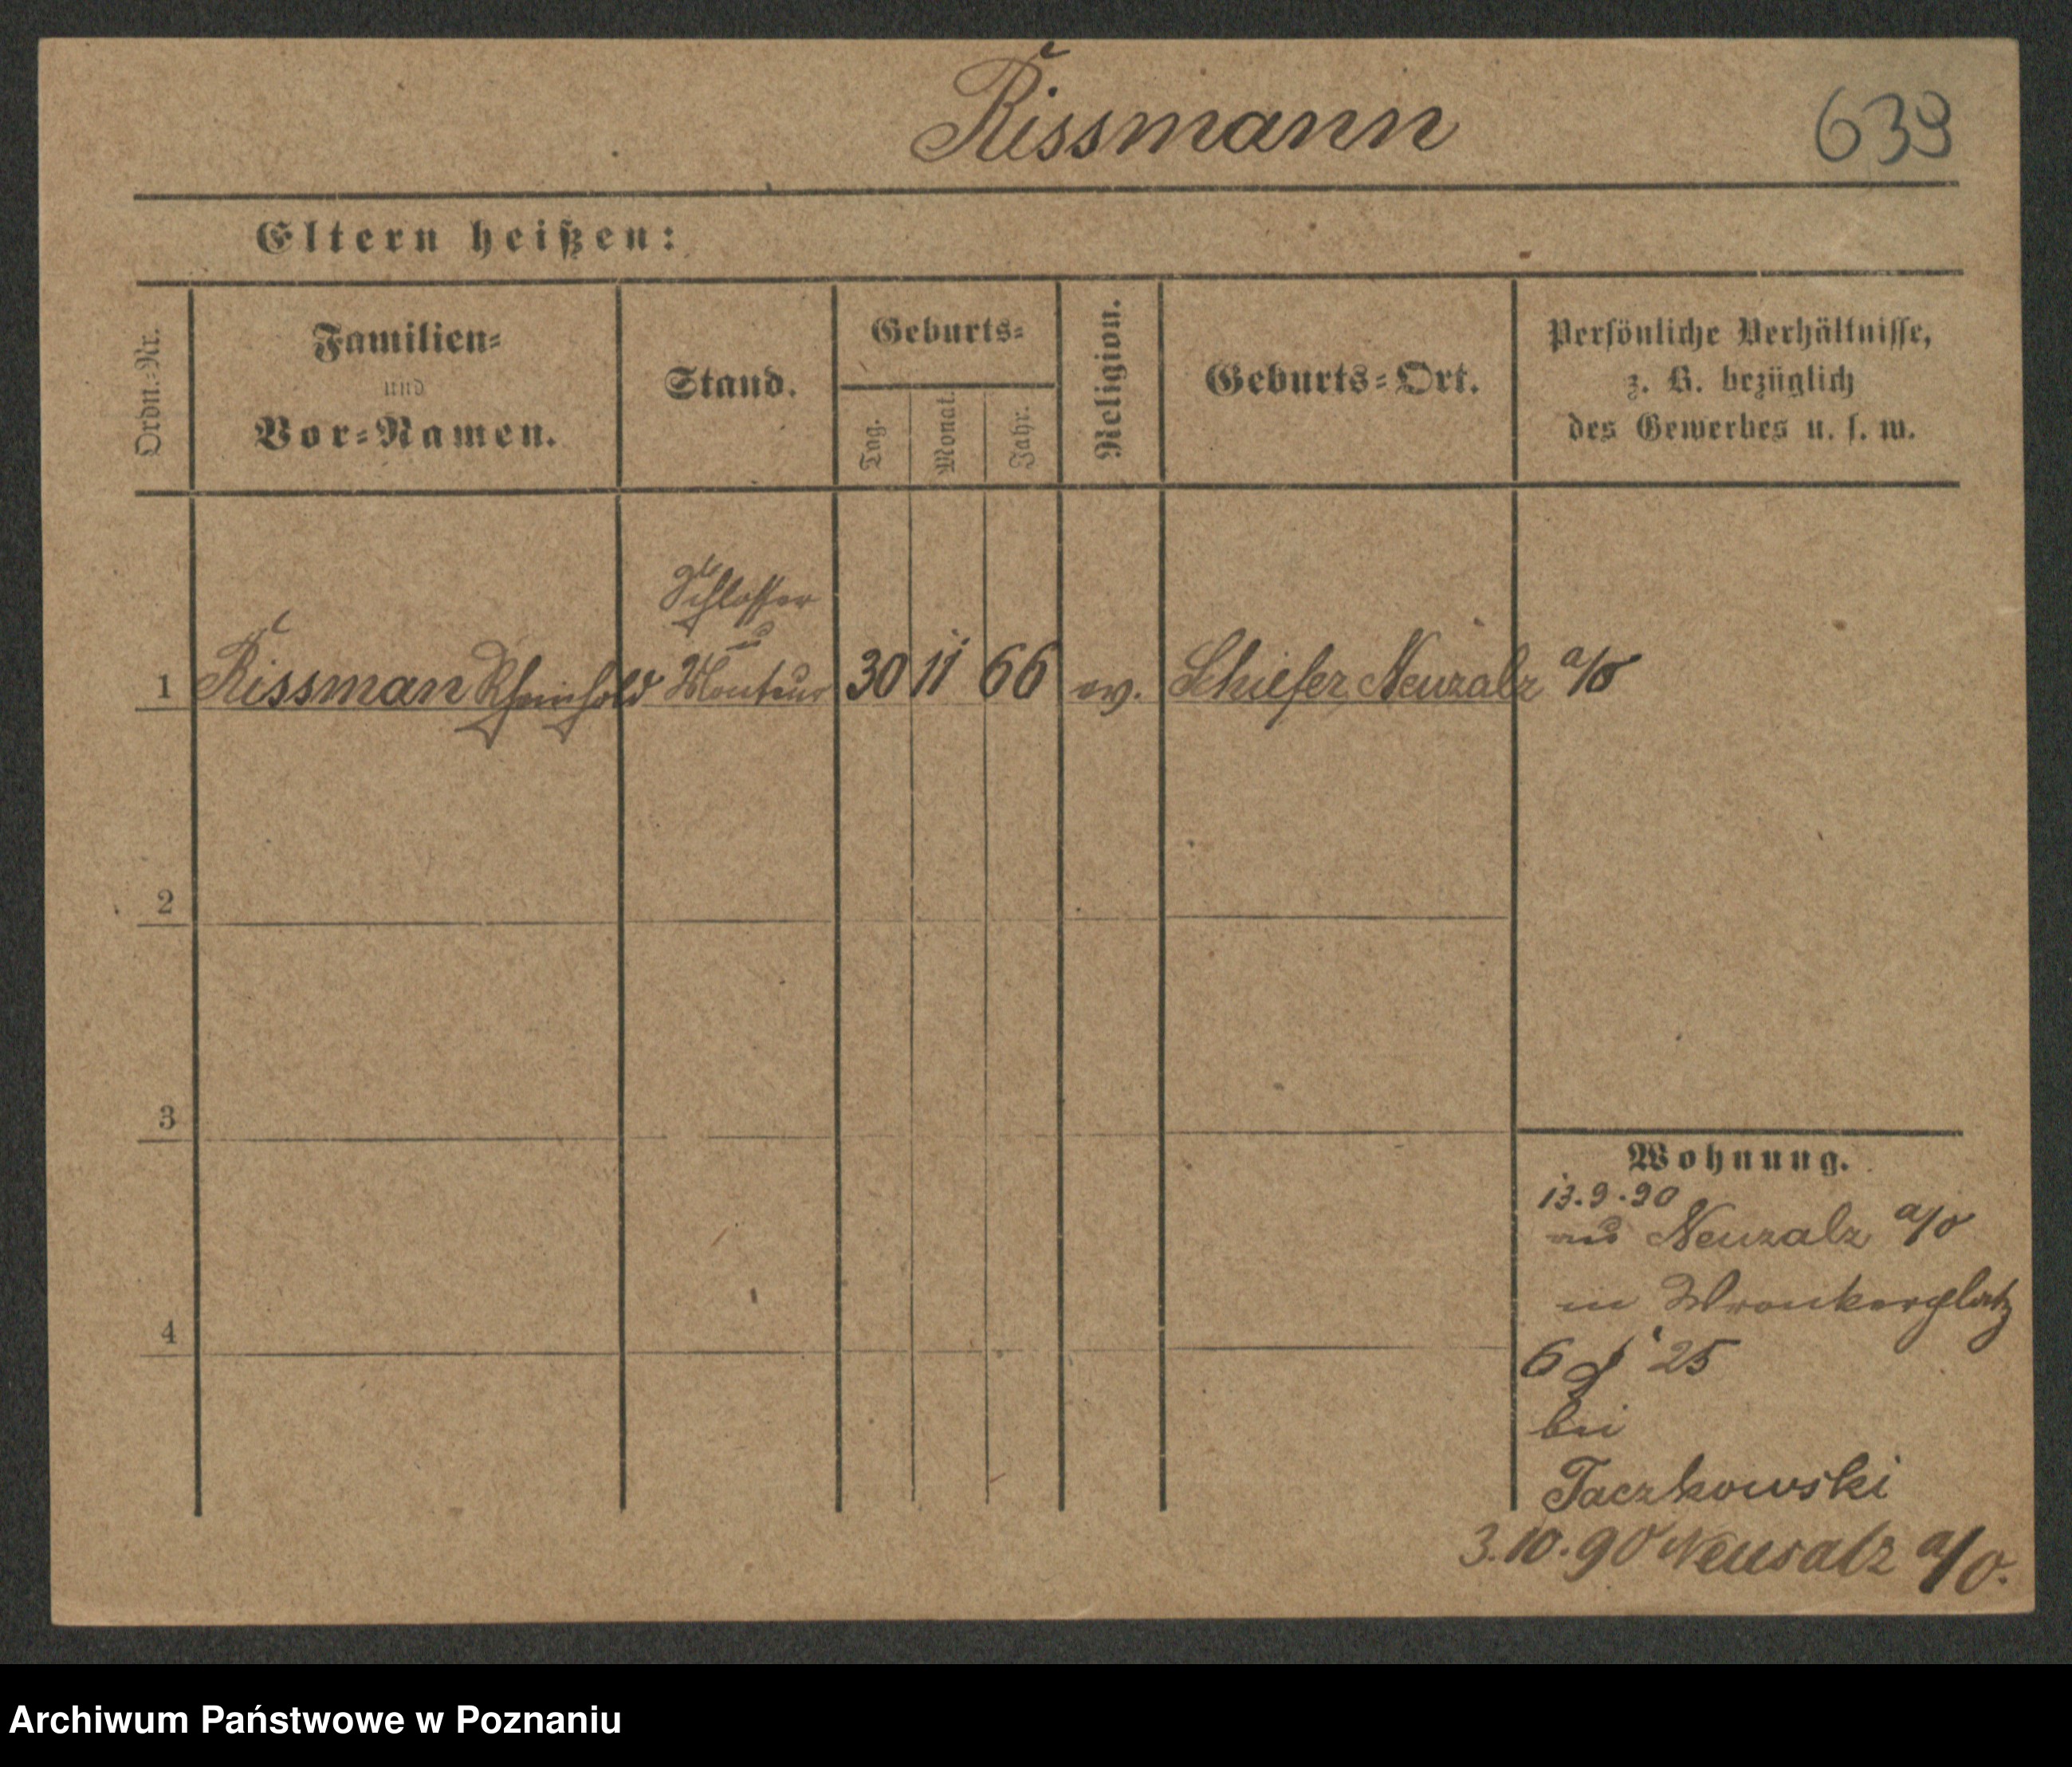 Rissmann 639
Eltern heißen:
Ordn.-Nr.
Familien-
und
Vor-Namen.
Stand.
Geburts-
Tag.
Monat.
Jahr.
Religion.
Geburts-Ort.
Persönliche Verhältnisse,
z. B. bezüglich
des Gewerbes u. s. w.
Schlosser
u
1 Rissman Rheinhold Monteur 30 11 66 ev. Schiefer, Neuzalz a/O
2
3
4
Wohnung.
13.9.90
aus Neuzalz a/O
in Wronkerplatz
6 25
bei
Taczkowski
3.10.90 Neusalz a/O.
Archiwum Państwowe w Poznaniu